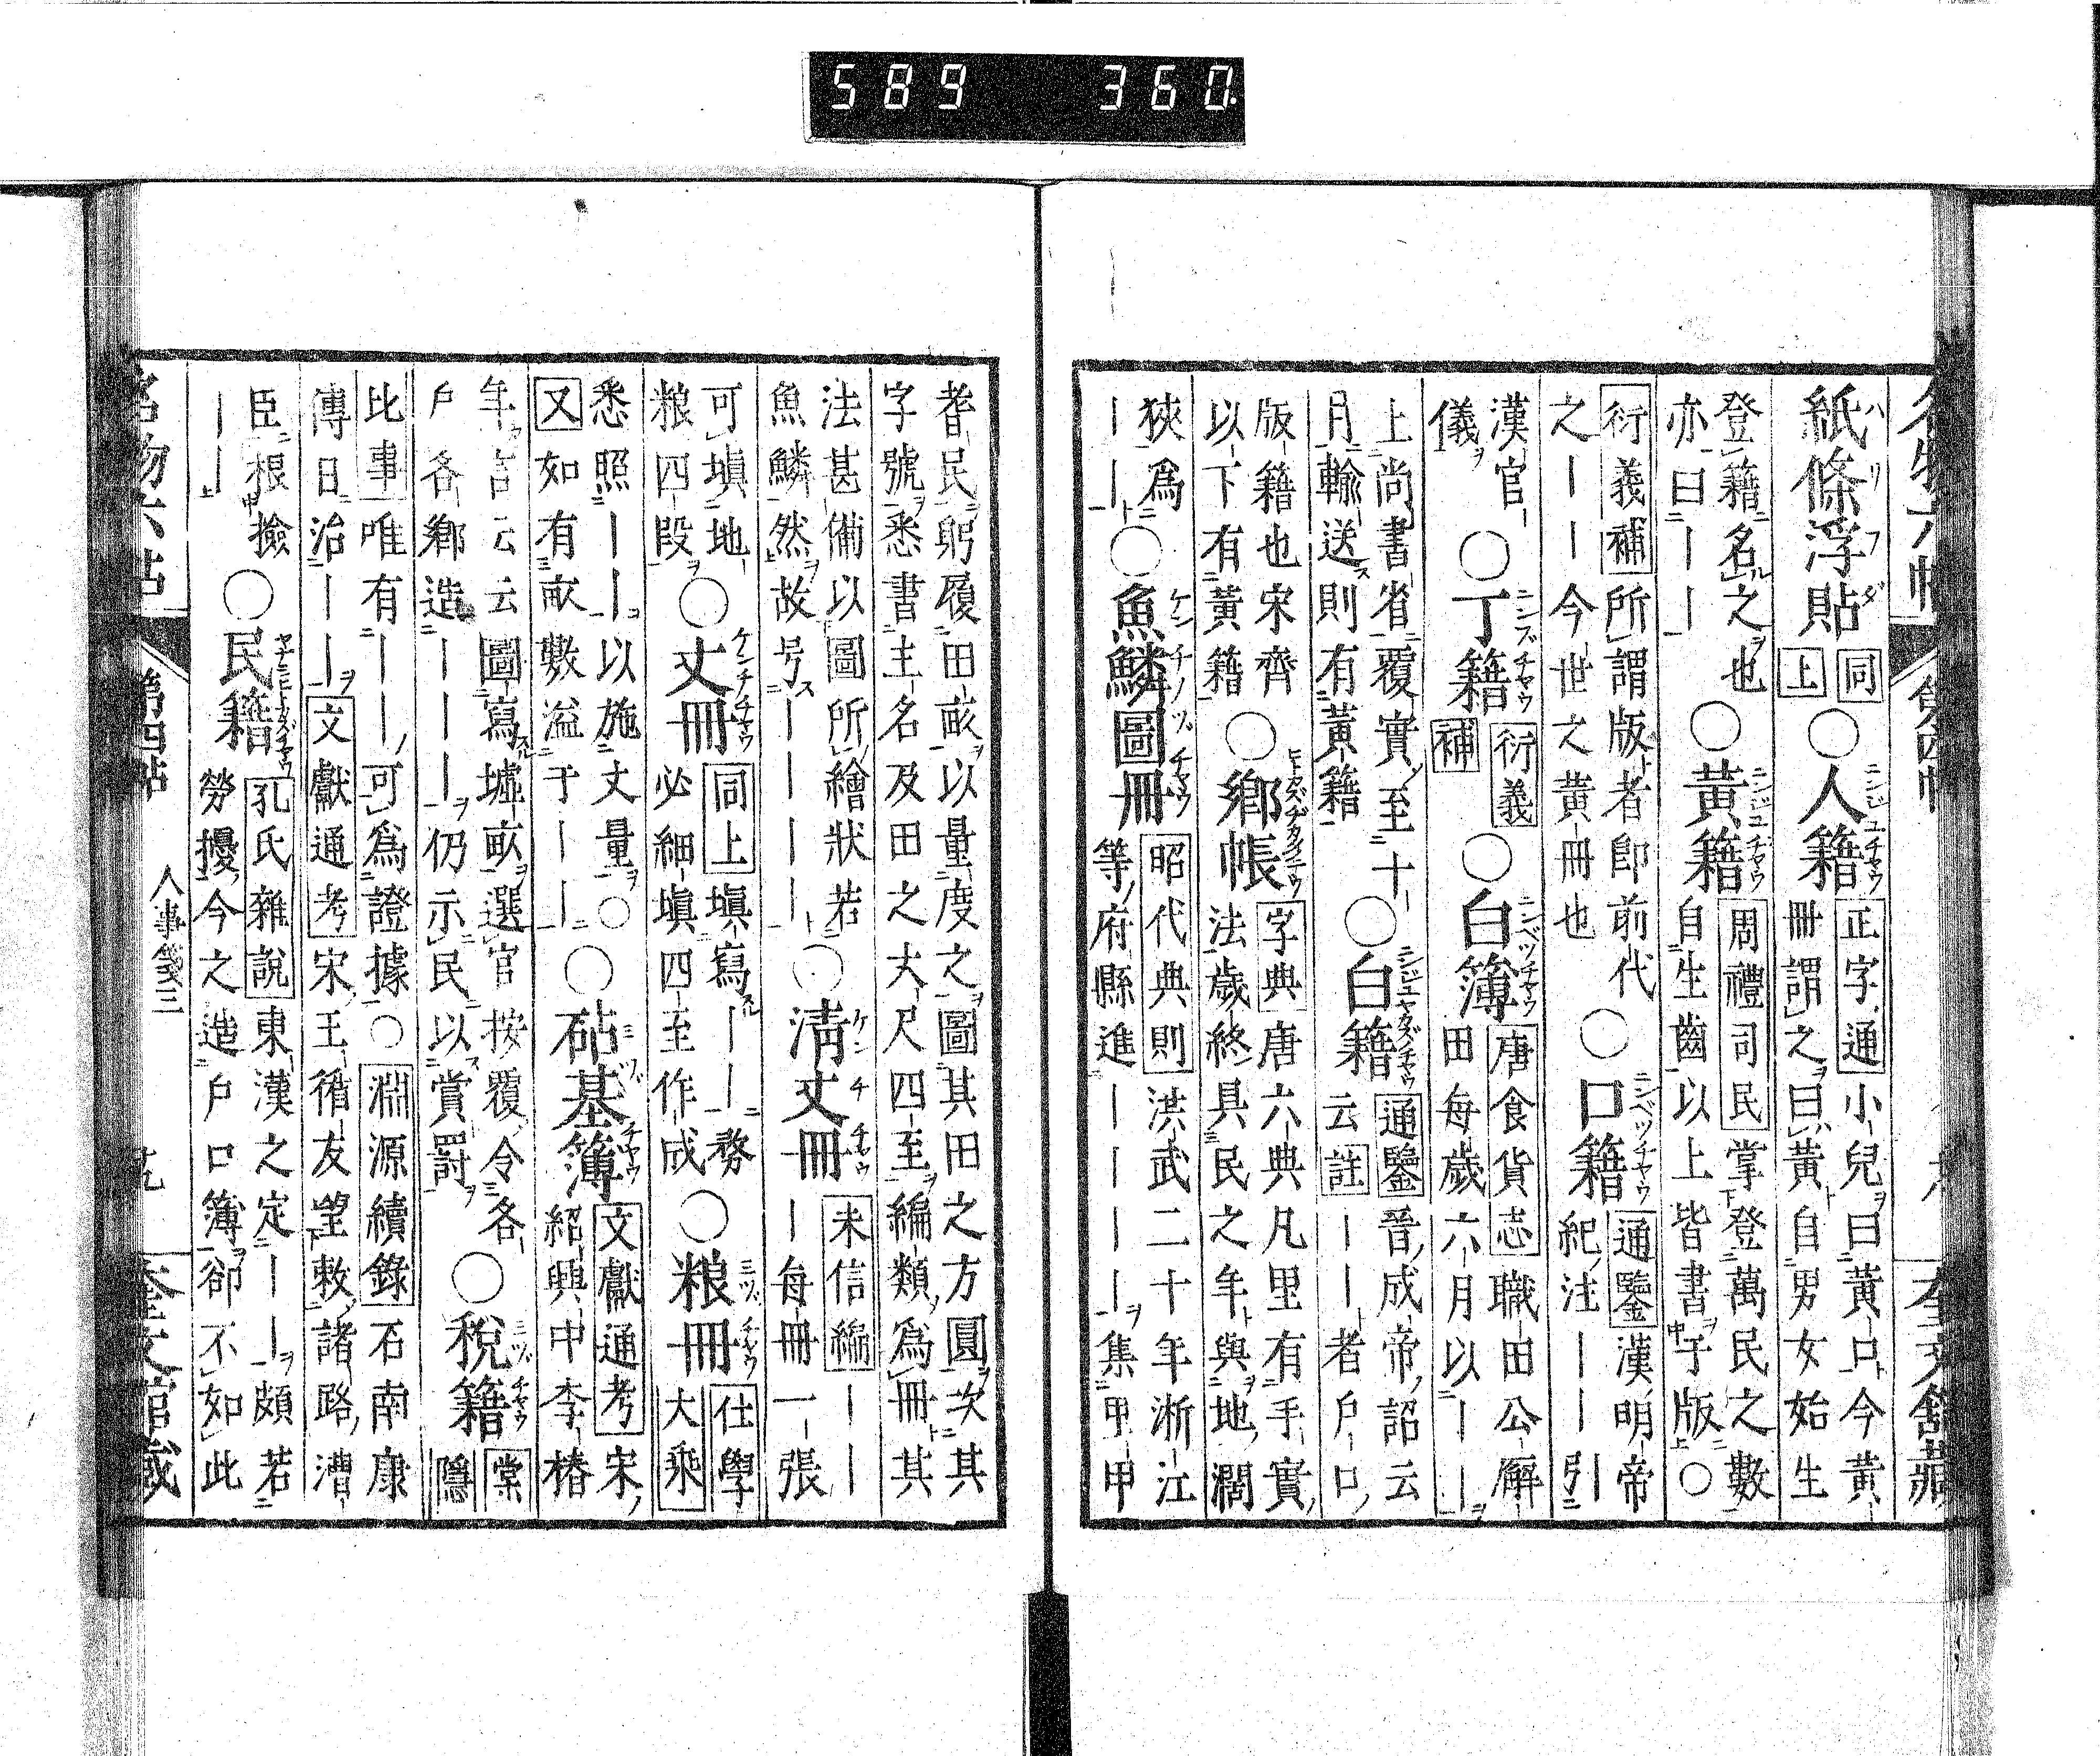 589 360
紙條浮貼 同上 ○人籍 正字通 小兒曰黃口今黃
冊謂之曰黃自男女始生
登籍名之也○黃籍 周禮司民 掌登萬民之數
亦曰｜｜｜ 自生齒以上皆書于版○
衍義補 所謂版者卽前代
之｜｜今世之黃冊也 ○口籍 通鑒 漢明帝
紀注｜｜｜
漢官儀 ○丁籍 衍義補 ○白簿 唐食貨志 職田公廨
田每歲六月以｜｜
上尚書省覆實至十
月輸送則有黃籍 ○白籍 通鑒 晉成帝詔云
云 註 ｜｜者戶口
版籍也宋齊
以下有黃籍 ○鄉帳 字典 唐六典凡里有手實
法歲終具民之年與地濶
狹爲
｜｜ ○魚鱗圖冊 昭代典則 洪武二十年浙江
等府縣進｜｜｜｜集甲甲
耆民躬履田畝以量度之圖其田之方圓次其
字號悉書主名及田之大尺四至編類爲冊其
法甚備以圖所繪狀若
魚鱗然故号｜｜｜｜ ○淸丈冊 未信編 ｜｜｜
｜每冊一張
可塡地
粮四段 ○丈冊 同上 塡寫｜｜務
必細塡四至作成 ○粮冊 仕學大乘
悉照｜｜以施丈量○
又 如有畝數溢于｜｜ ○砧基簿 文獻通考 宋
紹興中李椿
年言云云圖寫墟畝選官按覆令各
戶各鄉造｜｜｜仍示民以賞罰 ○稅籍 棠隱
比事 唯有｜｜可爲證據○ 淵源續錄 石南康
傳曰治｜｜ 文獻通考 宋王循友望敕諸路漕
臣根撿
｜｜ ○民籍 孔氏雜說 東漢之定｜｜頗若
勞擾今之造戶口簿卻不如此
名物六帖 第四帖 人事箋三 奎文館藏